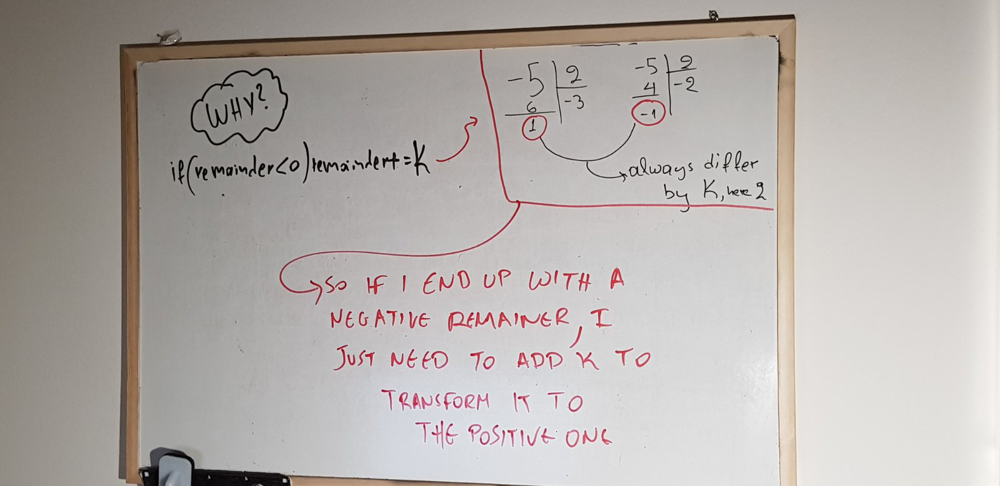 WHY?
if(remainder<0)remainder+=K
-5 2
6 -3
1
-5 2
4 -2
-1
always differ
by K, here 2
SO IF I END UP WITH A
NEGATIVE REMAINER, I
JUST NEED TO ADD K TO
TRANSFORM IT TO
THE POSITIVE ONE